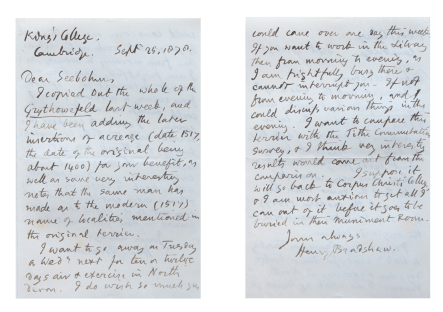 King's College,
Cambridge. Sept 28, 1878.
Dear Seebohm,
I copied out the whole of the
last week, and
I have been adding the later
insertions of acreage (date 1517,
the date of the original being
about 1400) for your benefit, as
well as some very interesting
notes that the same man has
made as to the modern (1517)
name of localities mentioned in
the original terrier.
I want to go away on Tuesday
or Wedy next for ten or twelve
days air & exercise in North
Devon. I do wish so much you
could come over one day this week.
If you want to work in the library
then from morning to evening, as
I am frightfully busy there &
cannot interrupt you. If not
from evening to morning, and I
could discuss various things in the
evening. I want to compare this
terrier with the Tithe Commutation
Survey, & I think very interesting
results would come out from the
comparison. I suppose it
will go back to Corpus Christi College
& I am most anxious to get all I
can out of it before it goes to be
buried in their Muniment Room.
Yours always
Henry Bradshaw.